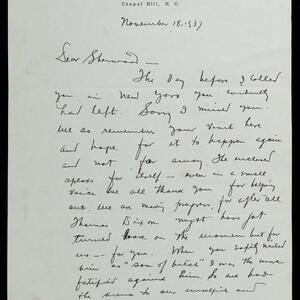 Chapel Hill, N. C.
November 18, 1937
Dear Sherwood —
The day before I called
you in New York you evidently
had left. Sorry I missed you.
We so remember your visit here
and hope for it to happen again
and not far away. The enclosed
speaks for itself — even in a small
voice we all thank you for helping
out. We are making progress, for after all
Thomas Dixon might have got
turned loose on the women but for
us — for you. When you softly called
him a "son of bitch" I was the more
fortified against him. So we had
the arena to our unselfish and